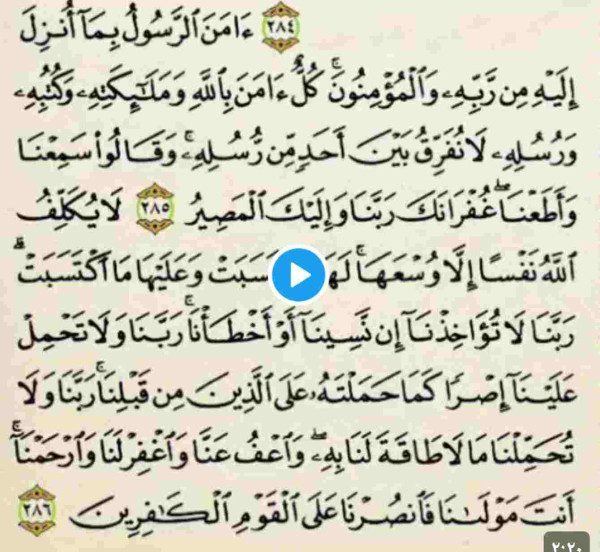 ٢٨٤ ءَامَنَ ٱلرَّسُولُ بِمَآ أُنزِلَ
إِلَيْهِ مِن رَّبِّهِۦ وَٱلْمُؤْمِنُونَۚ كُلٌّ ءَامَنَ بِٱللَّهِ وَمَلَـٰٓئِكَتِهِۦ وَكُتُبِهِۦ
وَرُسُلِهِۦ لَا نُفَرِّقُ بَيْنَ أَحَدٍ مِّن رُّسُلِهِۦۚ وَقَالُوا۟ سَمِعْنَا
وَأَطَعْنَاۖ غُفْرَانَكَ رَبَّنَا وَإِلَيْكَ ٱلْمَصِيرُ ٢٨٥ لَا يُكَلِّفُ
ٱللَّهُ نَفْسًا إِلَّا وُسْعَهَاۚ وَعَلَيْهَا مَا ٱكْتَسَبَتْۗ
رَبَّنَا لَا تُؤَاخِذْنَآ إِن نَّسِينَآ أَوْ أَخْطَأْنَاۚ رَبَّنَا وَلَا تَحْمِلْ
عَلَيْنَآ إِصْرًا كَمَا حَمَلْتَهُۥ عَلَى ٱلَّذِينَ مِن قَبْلِنَاۚ رَبَّنَا وَلَا
تُحَمِّلْنَا مَا لَا طَاقَةَ لَنَا بِهِۦۖ وَٱعْفُ عَنَّا وَٱغْفِرْ لَنَا وَٱرْحَمْنَآۚ
أَنتَ مَوْلَىٰنَا فَٱنصُرْنَا عَلَى ٱلْقَوْمِ ٱلْكَـٰفِرِينَ ٢٨٦
٢:٢٠